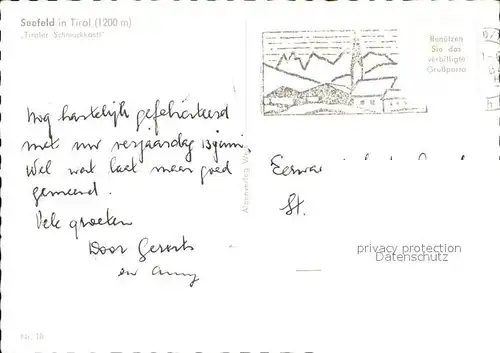 Seefeld in Tirol (1200 m)
„Tiroler Schmuckkastl"
Benützen
Sie das
verbilligte
Grußporto
Nog hartelijk gefeliciteerd
met uw verjaardag 13 juni.
Wel wat laat maar goed
gemeend.
Vele groeten
Door
en Anny
Alpenverlag
St.
privacy protection
Datenschutz
Nr. 18